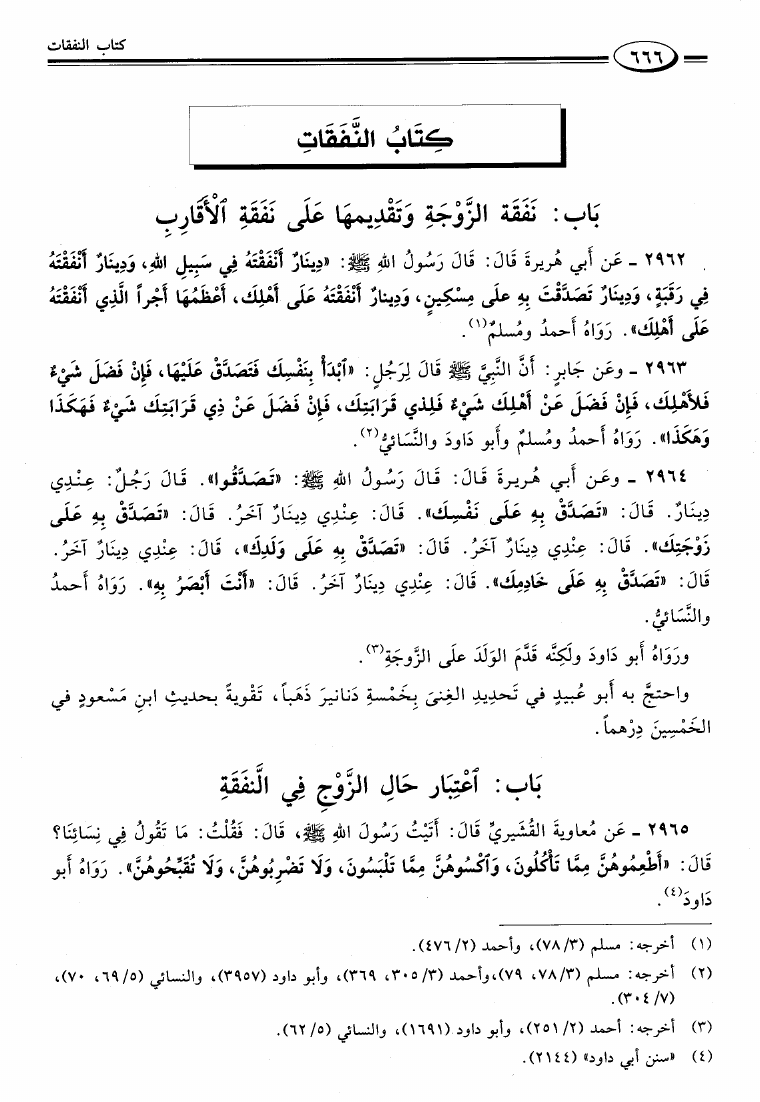 كتاب النفقات
٦٦٦
كِتَابُ النَّفَقَاتِ
بَاب: نَفَقَة الزَّوْجَةِ وَتَقْدِيمهَا عَلَى نَفَقَةِ ٱلْأَقَارِبِ
٢٩٦٢ ـ عَن أبي هُريرةَ قَالَ: قَالَ رَسُولُ اللهِ ﷺ: «دِينَارٌ أَنْفَقْتَهُ فِي سَبِيلِ اللهِ، وَدِينَارٌ أَنْفَقْتَهُ
فِي رَقَبَةٍ، وَدِينَارٌ تَصَدَّقْتَ بِهِ علَى مِسْكِينٍ، وَدِينَارٌ أَنْفَقْتَهُ عَلَى أَهْلِكَ، أَعْظَمُهَا أَجْراً الَّذِي أَنْفَقْتَهُ
عَلَى أَهْلِكَ». رَوَاهُ أحمدُ ومُسلمٌ(١).
٢٩٦٣ ـ وعَن جَابرٍ: أَنَّ النَّبِيَّ ﷺ قَالَ لِرَجُلٍ: «ٱبْدَأْ بِنَفْسِكَ فَتَصَدَّقْ عَلَيْهَا، فَإِنْ فَضَلَ شَيْءٌ
فَلأَهْلِكَ، فَإِنْ فَضَلَ عَنْ أَهْلِكَ شَيْءٌ فَلِذِي قَرَابَتِكَ، فَإِنْ فَضَلَ عَنْ ذِي قَرَابَتِكَ شَيْءٌ فَهَكَذَا
وَهَكَذَا». رَوَاهُ أحمدُ ومُسلمٌ وأبو دَاودَ والنَّسائيُّ(٢).
٢٩٦٤ ـ وعَن أبي هُريرةَ قَالَ: قَالَ رَسُولُ اللهِ ﷺ: «تَصَدَّقُوا». قَالَ رَجُلٌ: عِنْدِي
دِينَارٌ. قَالَ: «تَصَدَّقْ بِهِ عَلَى نَفْسِكَ». قَالَ: عِنْدِي دِينَارٌ آخَرُ. قَالَ: «تَصَدَّقْ بِهِ عَلَى
زَوْجَتِكَ». قَالَ: عِنْدِي دِينَارٌ آخَرُ. قَالَ: «تَصَدَّقْ بِهِ عَلَى وَلَدِكَ»، قَالَ: عِنْدِي دِينَارٌ آخَرُ.
قَالَ: «تَصَدَّقْ بِهِ عَلَى خَادِمِكَ». قَالَ: عِنْدِي دِينَارٌ آخَرُ. قَالَ: «أَنْتَ أَبْصَرُ بِهِ». رَوَاهُ أحمدُ
والنَّسائيُّ.
ورَوَاهُ أبو دَاودَ ولَكِنَّه قَدَّمَ الوَلَدَ علَى الزَّوجَةِ(٣).
واحتجَّ به أبو عُبيدٍ في تَحديدِ الغِنَى بِخَمْسةِ دَنانيرَ ذَهَباً، تَقْويةً بحديثِ ابنِ مَسْعودٍ في
الخَمْسِينَ دِرْهماً.
بَاب: ٱعْتِبَار حَالِ الزَّوْجِ فِي النَّفَقَةِ
٢٩٦٥ ـ عَن مُعاويةَ القُشَيريِّ قَالَ: أَتَيْتُ رَسُولَ اللهِ ﷺ، قَالَ: فَقُلْتُ: مَا تَقُولُ فِي نِسَائِنَا؟
قَالَ: «أَطْعِمُوهُنَّ مِمَّا تَأْكُلُونَ، وَٱكْسُوهُنَّ مِمَّا تَلْبَسُونَ، وَلَا تَضْرِبُوهُنَّ، وَلَا تُقَبِّحُوهُنَّ». رَوَاهُ أبو
دَاودَ(٤).
(١) أخرجه: مسلم (٣/ ٧٨)، وأحمد (٢/ ٤٧٦).
(٢) أخرجه: مسلم (٣/ ٧٨، ٧٩)،وأحمد (٣/ ٣٠٥، ٣٦٩)، وأبو داود (٣٩٥٧)، والنسائي (٥/ ٦٩، ٧٠)،
(٧/ ٣٠٤).
(٣) أخرجه: أحمد (٢/ ٢٥١)، وأبو داود (١٦٩١)، والنسائي (٥/ ٦٢).
(٤) «سنن أبي داود» (٢١٤٤).